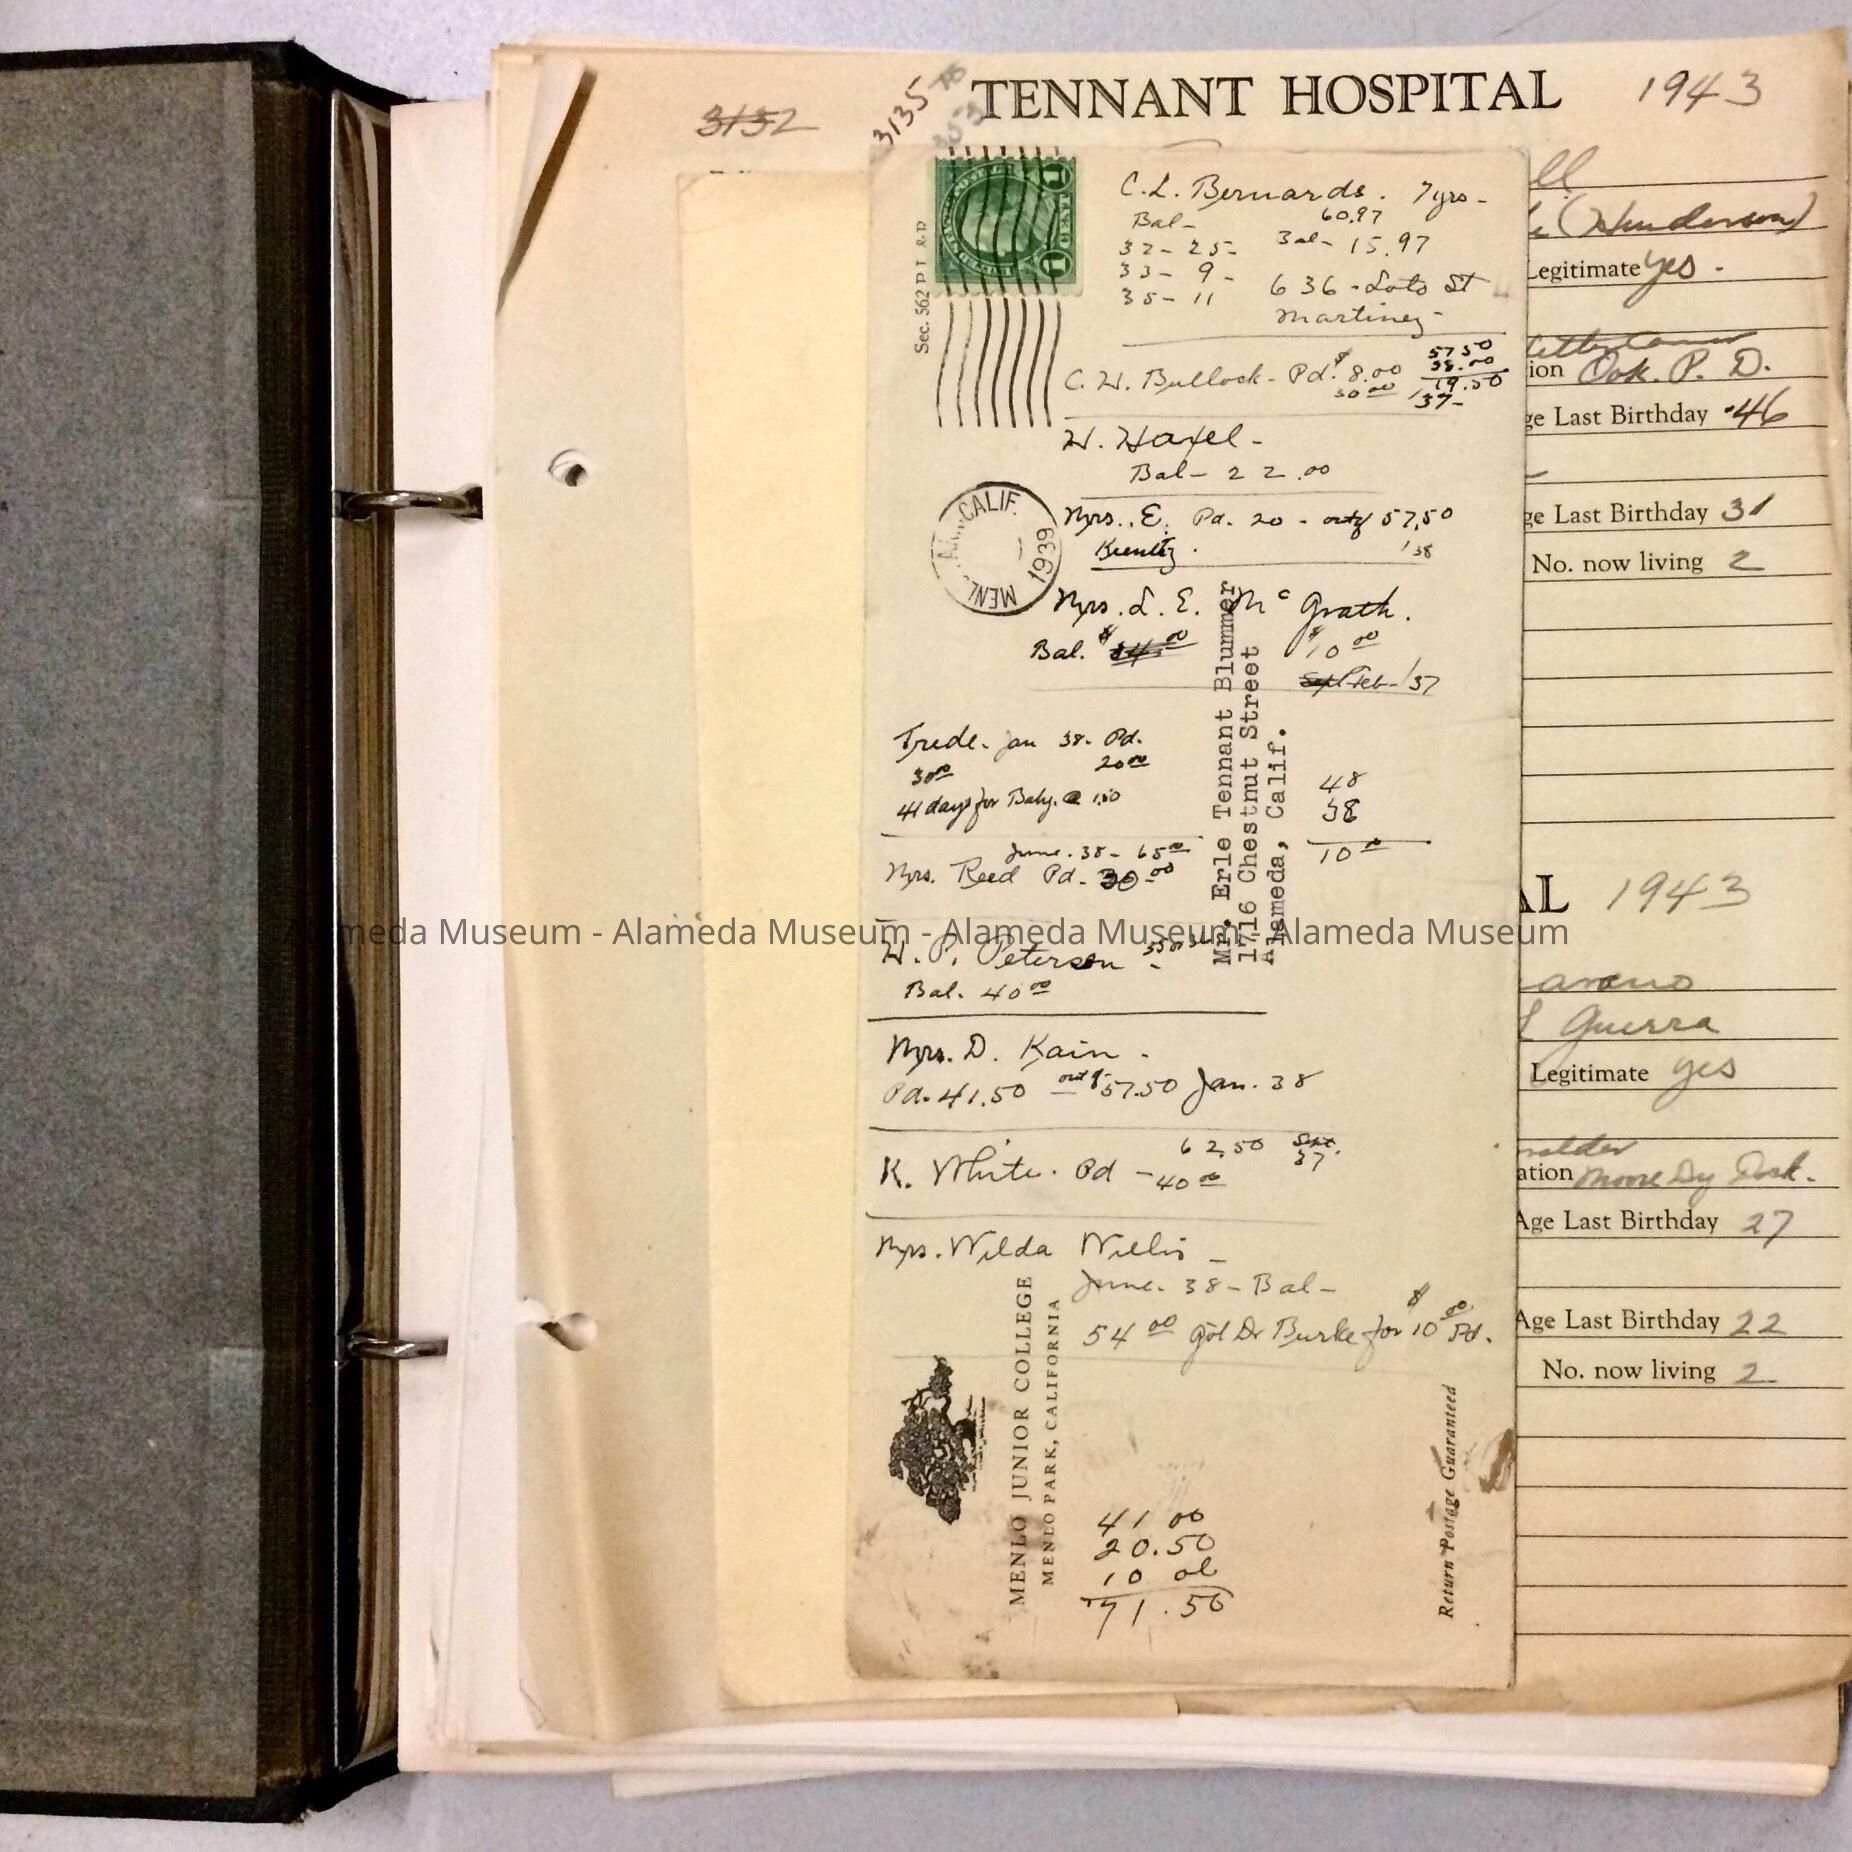 3132
3135
TENNANT HOSPITAL 1943
Sec. 562 P. L. & R.
1 CENT 1
C. L. Bernards. 7 yrs -
Bal - 60.97
32 - 25 - Bal - 15.97
33 - 9 -
35 - 11 636 - Soto St
Martinez -
C. W. Bullock - Pd. $8.00
30.00
57 50
38.00
19.50
'37 -
W. Haxel -
Bal - 22.00
Mrs. E. Pd. 20 - out of 57.50
Kuentz. '38
MENLO PARK CALIF.
1939
Mrs. L. E. McGrath.
Bal. $ 34.00 $10.00
Sept Feb - '37
Trede. Jan 38. Pd.
30.00 20.00
41 days for Baby. @ 1.50
48
38
10.00
June. 38 - 65.00
Mrs. Reed Pd. - 30.00
W. P. Peterson -
Bal. 40.00
Mrs. D. Kain -
Pd. 41.50 out of 57.50 Jan. 38
62.50 Sept.
37
K. White. Pd - 40.00
Mrs. Wilda Willis -
June. 38 - Bal -
54.00 got Dr Burke for $10.00 Pd.
41 00
20.50
10 00
71.50
Mr. Erle Tennant Blummer
1716 Chestnut Street
Alameda, Calif.
MENLO JUNIOR COLLEGE
MENLO PARK, CALIFORNIA
Return Postage Guaranteed
ll
(Henderson)
Legitimate yes.
Letter Carrier
ion Oak. P. D.
ge Last Birthday 46
ge Last Birthday 31
No. now living 2
AL 1943
Guerra
Legitimate yes
ation Moore Dry Dock.
Age Last Birthday 27
Age Last Birthday 22
No. now living 2
Alameda Museum - Alameda Museum - Alameda Museum - Alameda Museum